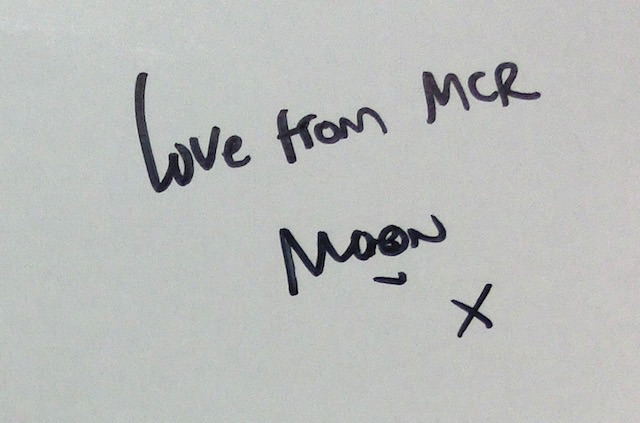 Love from MCR
Moon
X